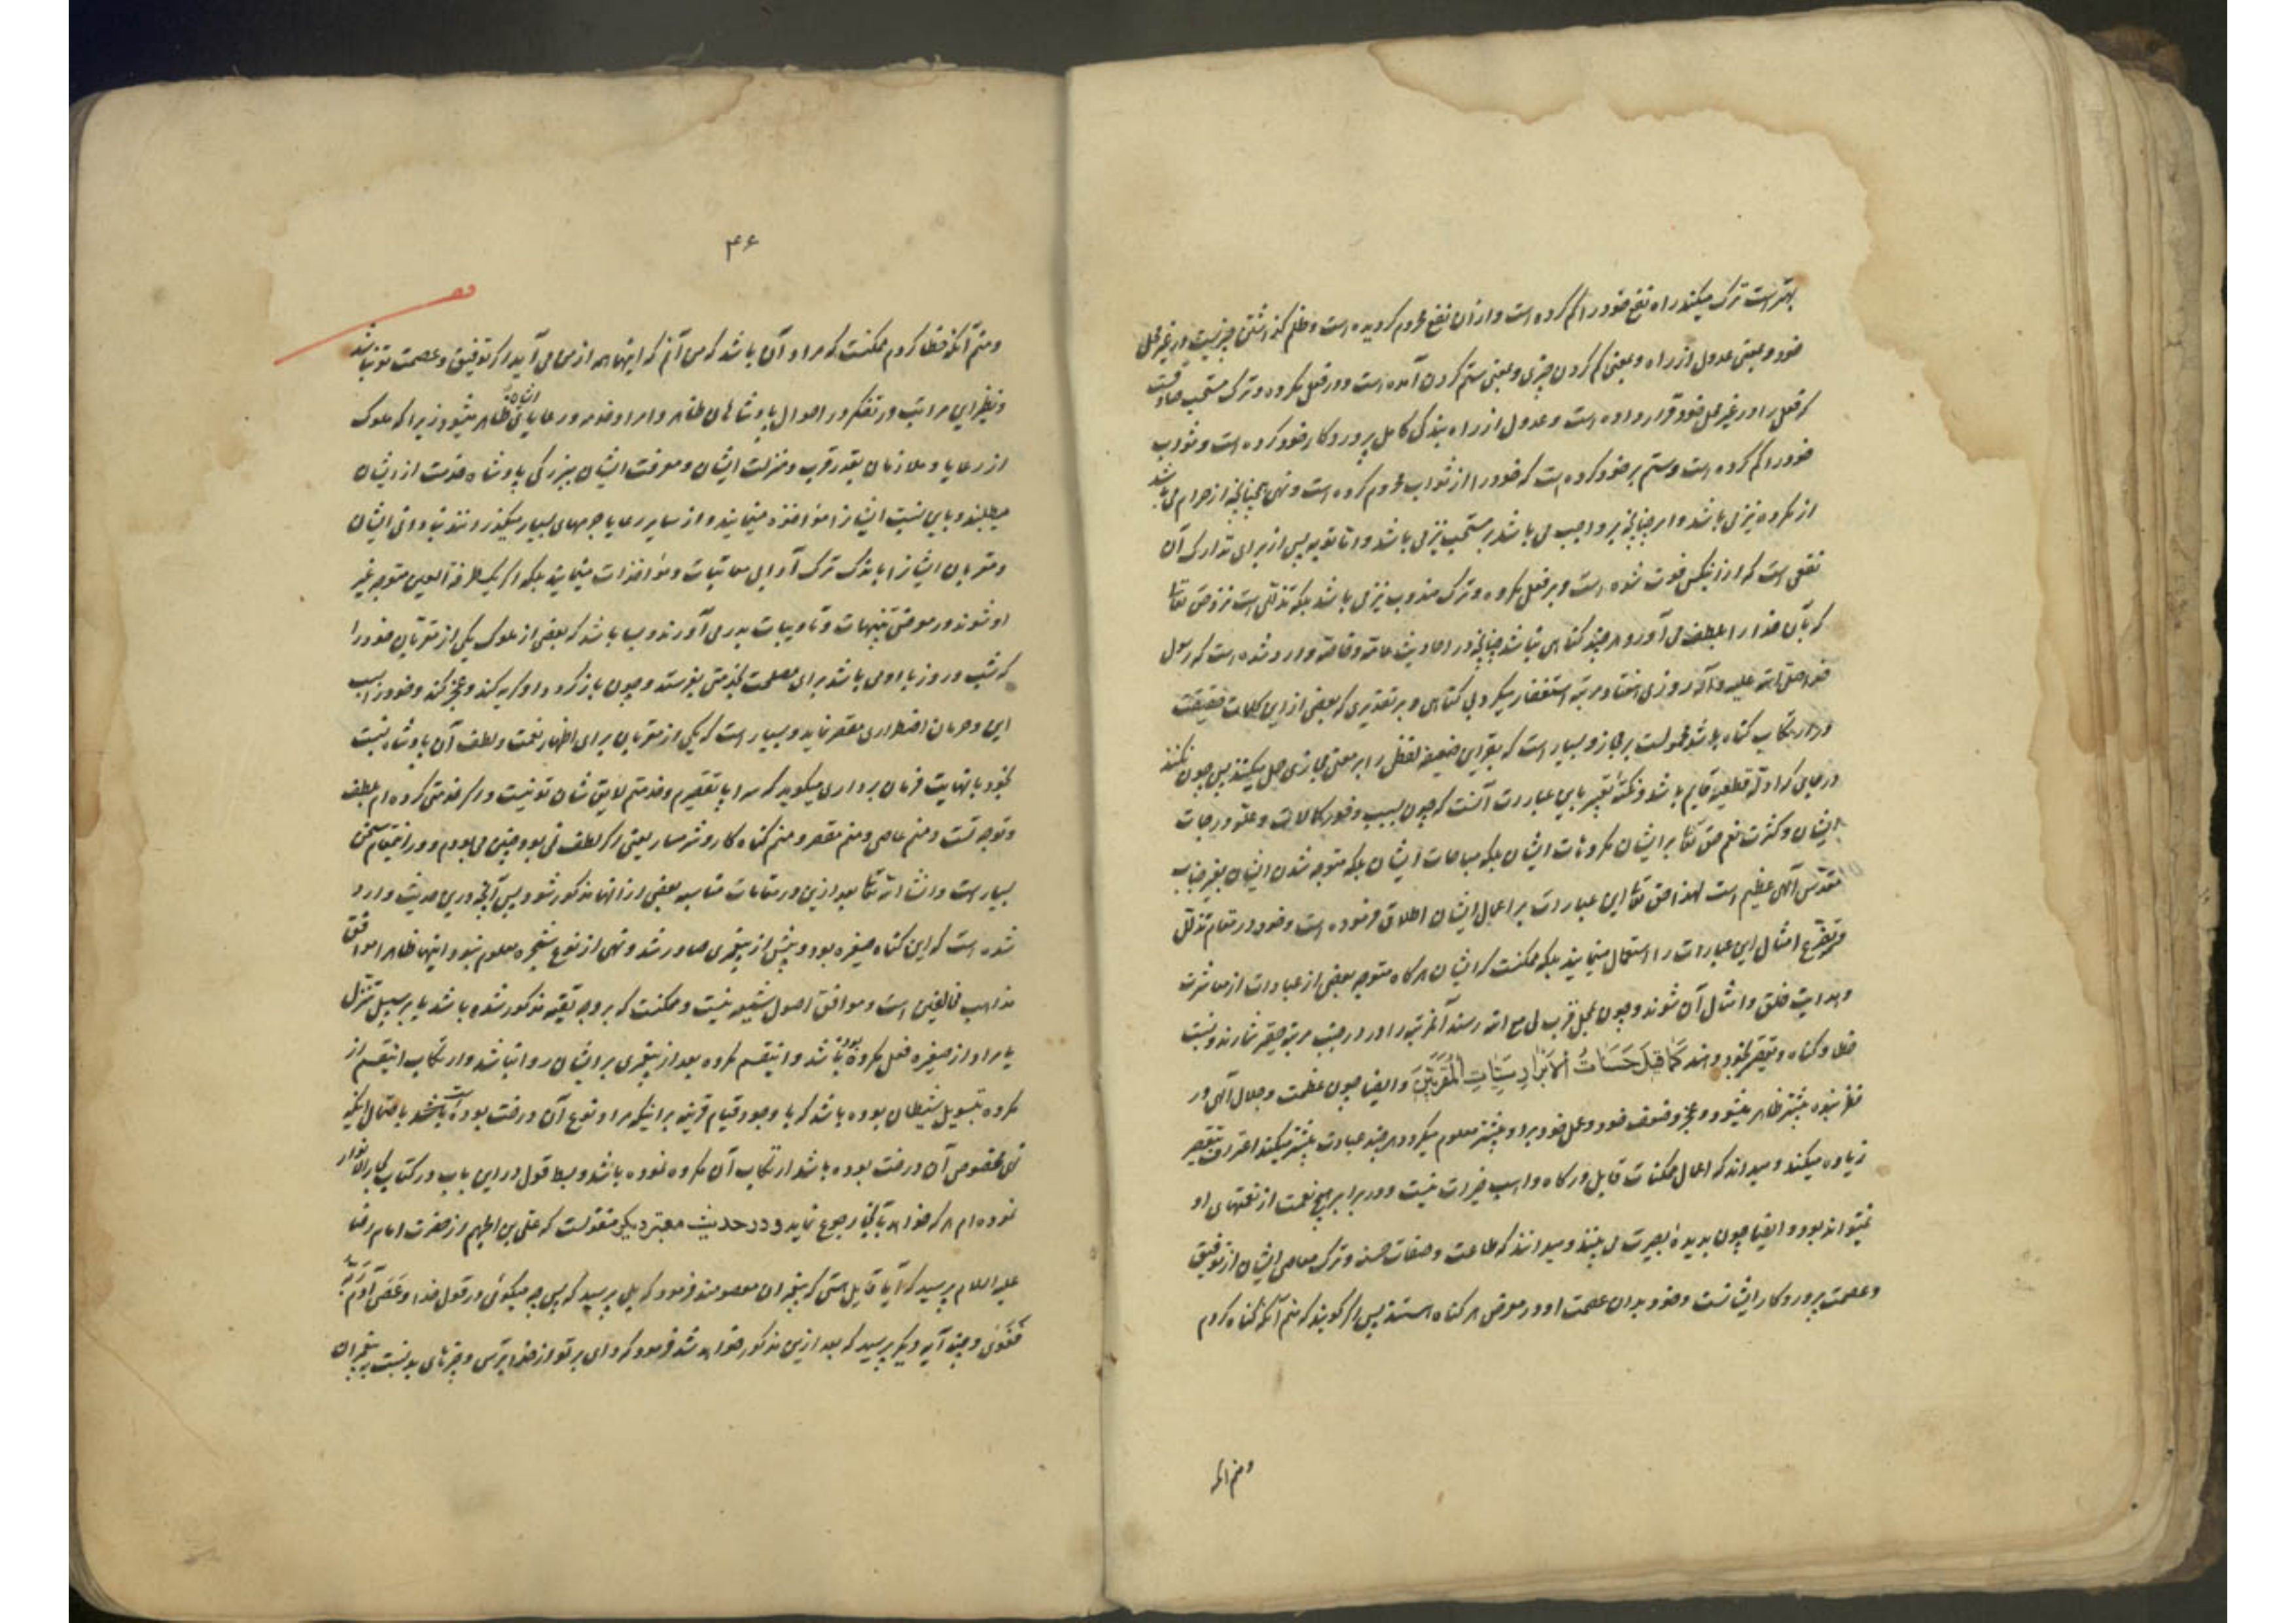 بهتر است ترک میکند راه نفع خود را گم کرده است و از آن نفع محروم گردیده است و ظلم گذاشتن چیزیست در غیر محل
خود و بمعنی عدول از راه و بمعنی کم کردن چیزی و بمعنی ستم کردن آمده است و در فعل مکروه و ترک مستحب صادقست
که فعل را در غیر محل خود قرار داده است و عدول از راه بندگی کامل پروردگار خود کرده است و ثواب
خود را کم کرده است و ستم بر خود کرده است که خود را از ثواب محروم کرده است و نهی همچنانچه از حرام می باشد
از مکروه نیز می باشد و امر چنانچه بر واجب می باشد بر مستحب نیز می باشد و اما توبه پس از برای تدارک آن
نقصی است که از اینکس فوت شده است و بر فعل مکروه و ترک مندوب نیز می باشد بلکه تذللی است نزد حق تعالی
که بآن خدا را بلطف می آورد و هر چند گناهی نباشد چنانچه در احادیث عامه و خاصه وارد شده است که رسول
خدا صلی الله علیه و آله روزی هفتاد مرتبه استغفار میکرد بی گناهی و بر تقدیری که بعضی از این کلمات حقیقت
در ارتکاب گناه باشد محمولست بر مجاز و بسیار است که بقراین ضعیفه لفظی را بر معنی مجازی حمل میکنند پس چون نکنند
در جایی که ادله قطعیه قایم باشد و نکته تعبیر باین عبارت آنست که چون بسبب وفور کمالات و علو درجات
ایشان و کثرت نعم حق تعالی بر ایشان مکروهات ایشان بلکه مباحات ایشان بلکه متوجه شدن ایشان بغیر جناب
مقدس آلهی عظیم است لهذا حق تعالی این عبارات بر اعمال ایشان اطلاق فرموده است و خود در مقام تذلل
و تضرع امثال این عبارات را استعمال مینمایند بلکه ممکنست که ایشان هرگاه متوجه بعضی از عبادات از معاشرت
و هدایت خلق و امثال آن شوند و چون بمحل قرب لی مع الله رسند آنمرتبه را در جنب مرتبه حقیر شمارند و نسبت
خطا و گناه و تقصیر بخود دهند کَمَا قِیلَ حَسَنَاتُ الأَبْرَارِ سَیِّئَاتُ الْمُقَرَّبِینَ و ایضا چون عظمت و جلال آلهی در
نظر بنده بیشتر ظاهر میشود و عجز و ضعف خود و عمل خود بر او بیشتر معلوم میگردد هر چند عبادت بیشتر میکند اعتراف بتقصیر
زیاده میکند و میداند که اعمال ممکنات قابل درگاه واهب خیرات نیست و در برابر هیچ نعمت از نعمتهای او
نمیتواند بود و ایضا چون بدیده بصیرت می بینند و میدانند که طاعت و صفات حسنه و ترک معاصی ایشان از توفیق
و عصمت پروردگار ایشانست و خود بدون عصمت او در معرض هر گناه هستند پس اگر گویند که منم آنکه گناه کردم
و منم آنکه
۴۶
و منم آنکه خطا کردم ممکنست که مراد آن باشد که من آنم که اینها همه از من می آید اگر توفیق و عصمت تو نباشد
و نظیر این مراتب در تفکر در احوال پادشاهان ظاهر و امرا و خدم و رعایای ایشان ظاهر میشود زیرا که ملوک
از رعایا و ملازمان بقدر قرب و منزلت ایشان و معرفت ایشان ببزرگی پادشاه خدمت از ایشان
میطلبند و باین نسبت ایشانرا مؤاخذه مینمایند و از سایر رعایا جرمهای بسیار میگذرانند بنادانی ایشان
و مقربان ایشانرا باندک ترک آدابی معاتبات و مؤاخذات مینمایند بلکه اگر یک طرفة العین متوجه غیر
او شوند در معرض تنبیهات و تادیبات بدر می آورند و بسا باشد که بعضی از ملوک یکی از مقربان خود را
که شب و روز با او می باشد برای مصلحت بخدمتی بفرستد و چون باز گردد او گریه کند و عجز کند و خود را بسبب
این حرمان اضطراری مقصر نماید و بسیار است که یکی از مقربان برای اظهار نعمت و لطف آن پادشاه نسبت
بخود با نهایت فرمان برداری میگوید که سراپا تقصیرم و خدمتم لایق شان تو نیست و اگر خدمتی کرده ام بلطف
و توجه تست و منم عاصی و منم مقصر و منم گناه کار و شرمسار یعنی اگر لطف تو نمی بود چنین می بودم و در اینمقام سخن
بسیار است و انشاء الله تعالی بعد ازین در مقامات مناسبه بعضی از آنها مذکور شود پس آنچه درین حدیث وارد
شده است که این گناه صغیره بود و پیش از پیغمبری صادر شد و نهی از نوع شجره معلوم نبود اینها ظاهرا موافق
مذاهب مخالفین است و موافق اصول شیعه نیست و ممکنست که بر وجه تقیه مذکور شده باشد یا بر سبیل تنزل
یا مراد از صغیره فعل مکروه بوده باشد و اینقسم مکروه بعد از پیغمبری بر ایشان روا نباشد و ارتکاب اینقسم از
مکروه بتسویل شیطان بوده باشد که با وجود قیام قرینه بر اینکه مراد نوع آن درخت بوده است باحتمال اینکه
نهی مخصوص آن درخت بوده باشد ارتکاب آن مکروه نموده باشد و بسط قول در این باب در کتاب بحار الانوار
نموده ام هر که خواهد بآنجا رجوع نماید و در حدیث معتبر دیگر منقولست که علی بن الجهم از حضرت امام رضا
علیه السلام پرسید که آیا قایل هستی که پیغمبران معصومند فرمود که بلی پرسید که پس چه میگوئی در قول خدا وَعَصَی آدَمُ رَبَّهُ
فَغَوَی و چند آیه دیگر پرسید که بعد ازین مذکور خواهد شد فرمود که وای بر تو از خدا بترس و چیزهای بد نسبت به پیغمبران